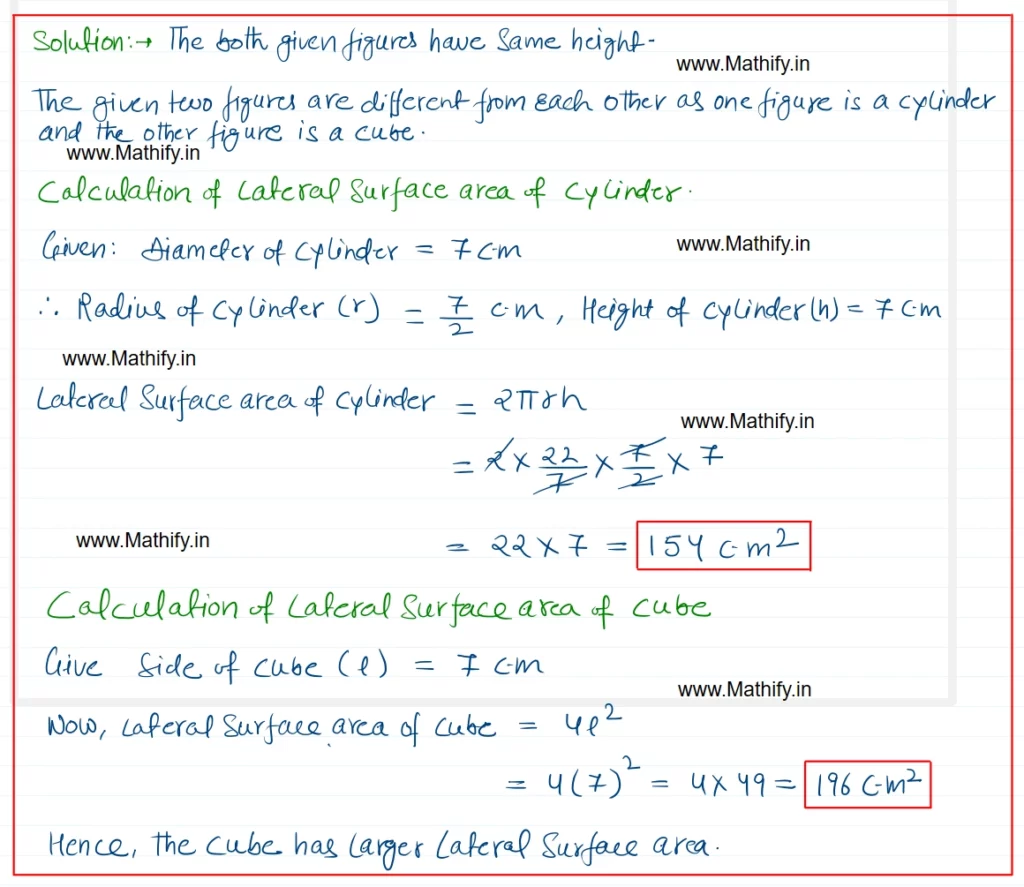 Solution:→ The both given figures have Same height-
www.Mathify.in
The given two figures are different from each other as one figure is a cylinder
and the other figure is a cube.
www.Mathify.in
Calculation of Lateral Surface area of cylinder.
Given: Diameter of cylinder = 7 cm
www.Mathify.in
∴ Radius of cylinder (r) = 7/2 c·m, Height of cylinder (h) = 7 cm
www.Mathify.in
Lateral Surface area of cylinder = 2πrh
www.Mathify.in
= 2 × 22/7 × 7/2 × 7
www.Mathify.in
= 22 × 7 = 154 c·m²
Calculation of Lateral Surface area of cube
Give Side of cube (l) = 7 c·m
www.Mathify.in
Now, Lateral Surface area of cube = 4l²
= 4(7)² = 4 × 49 = 196 c·m²
Hence, the cube has larger Lateral Surface area.